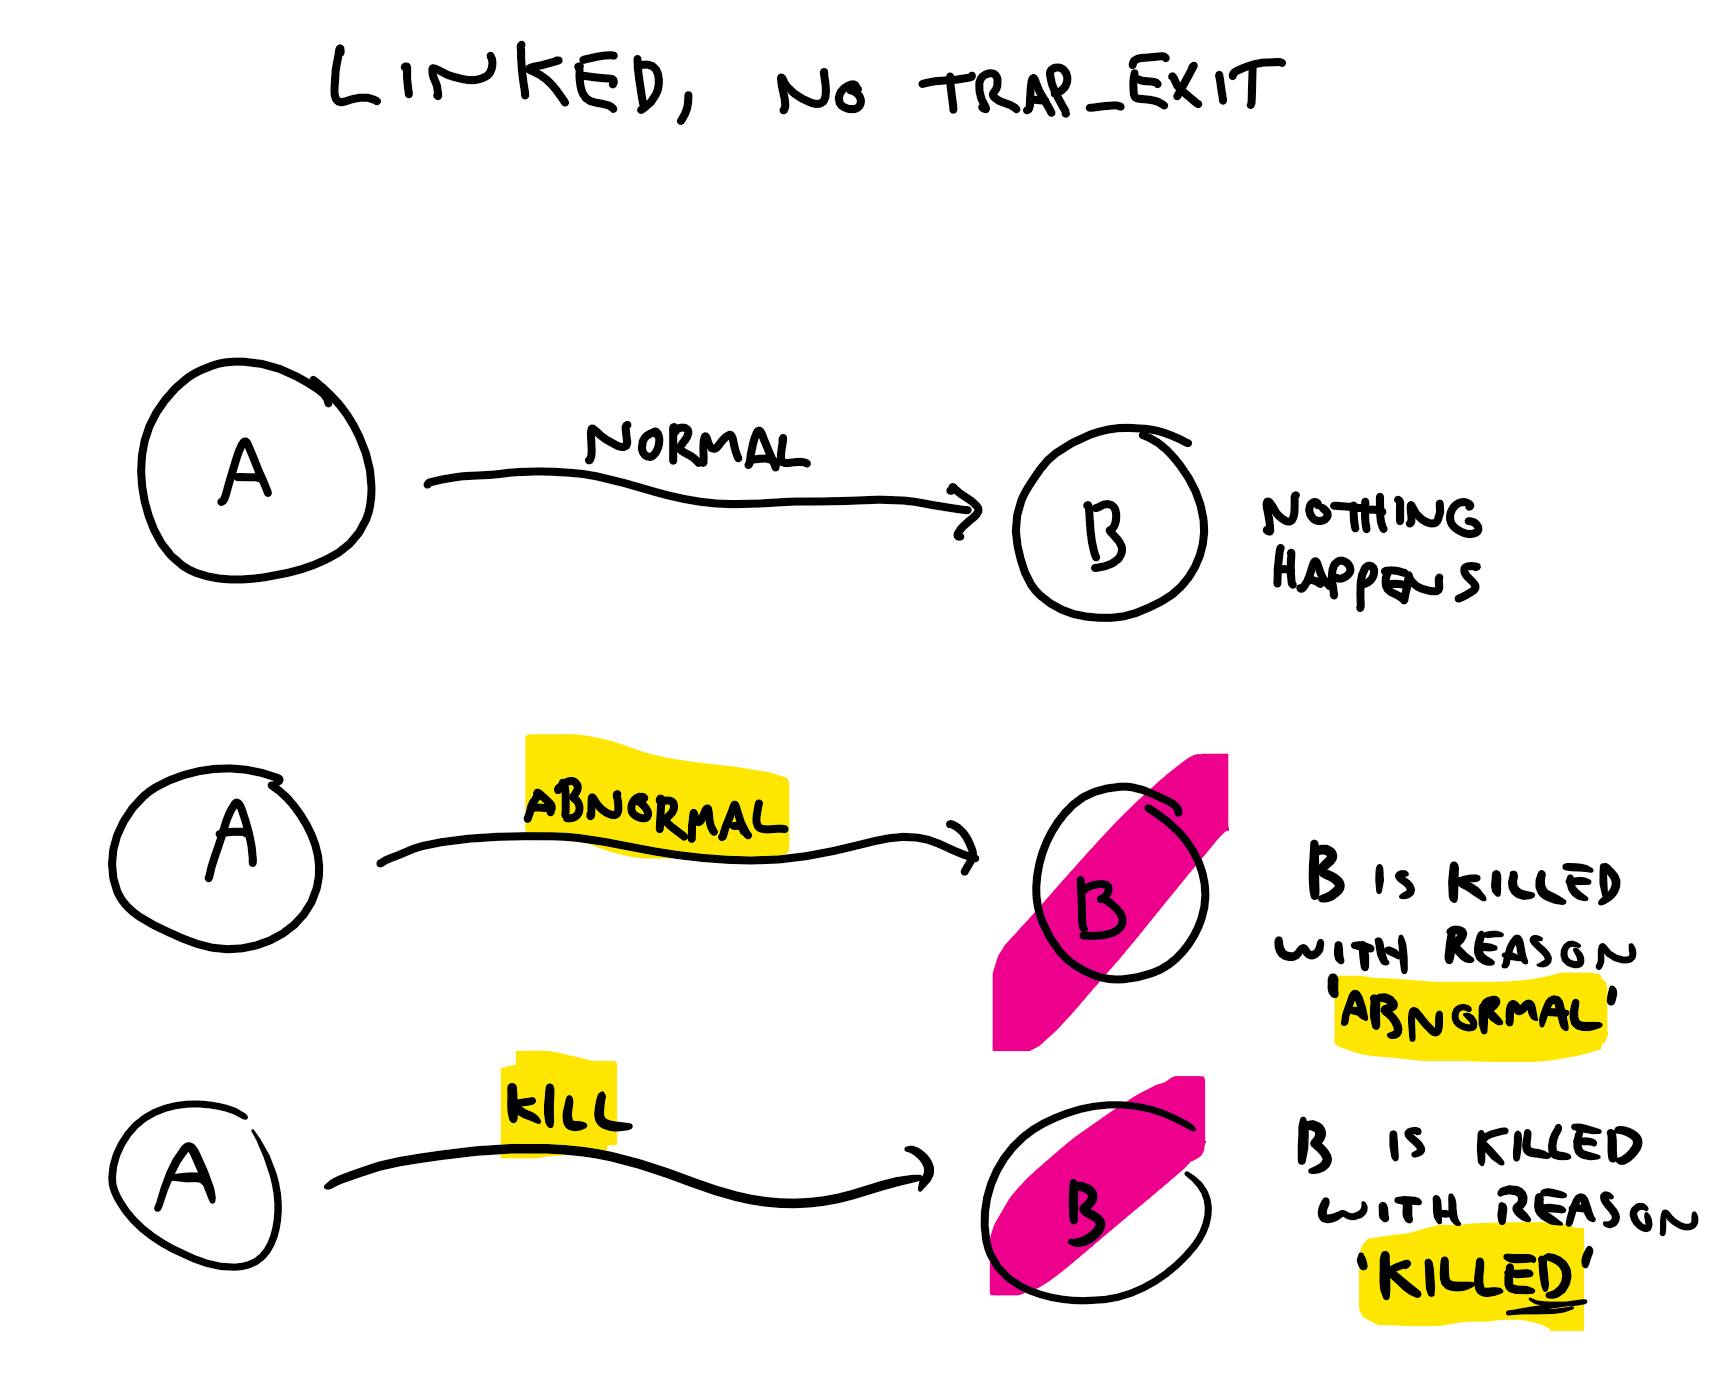 LINKED, NO TRAP_EXIT
A
NORMAL
B
NOTHING
HAPPENS
A
ABNORMAL
B
B IS KILLED
WITH REASON
'ABNORMAL'
A
KILL
B
B IS KILLED
WITH REASON
'KILLED'